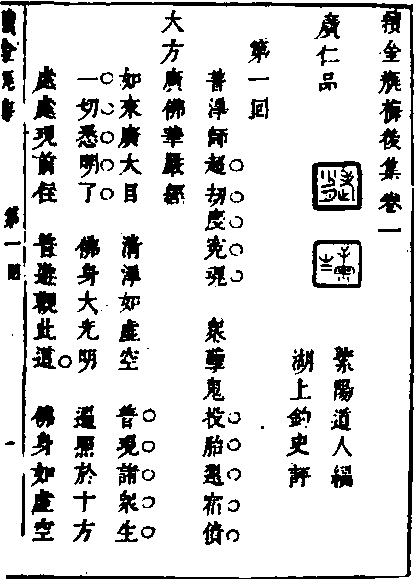 續金瓶梅後集卷一
紫陽道人編
湖上釣史評
廣仁品
第一回
普淨師超劫度冤魂 衆孽鬼投胎還宿債
大方廣佛華嚴經
如來廣大目 清淨如虛空 普現諸衆生
一切悉明了 佛身大光明 遍照於十方
處處現前住 普遊觀此道 佛身如虛空
續金瓶梅 第一回 一